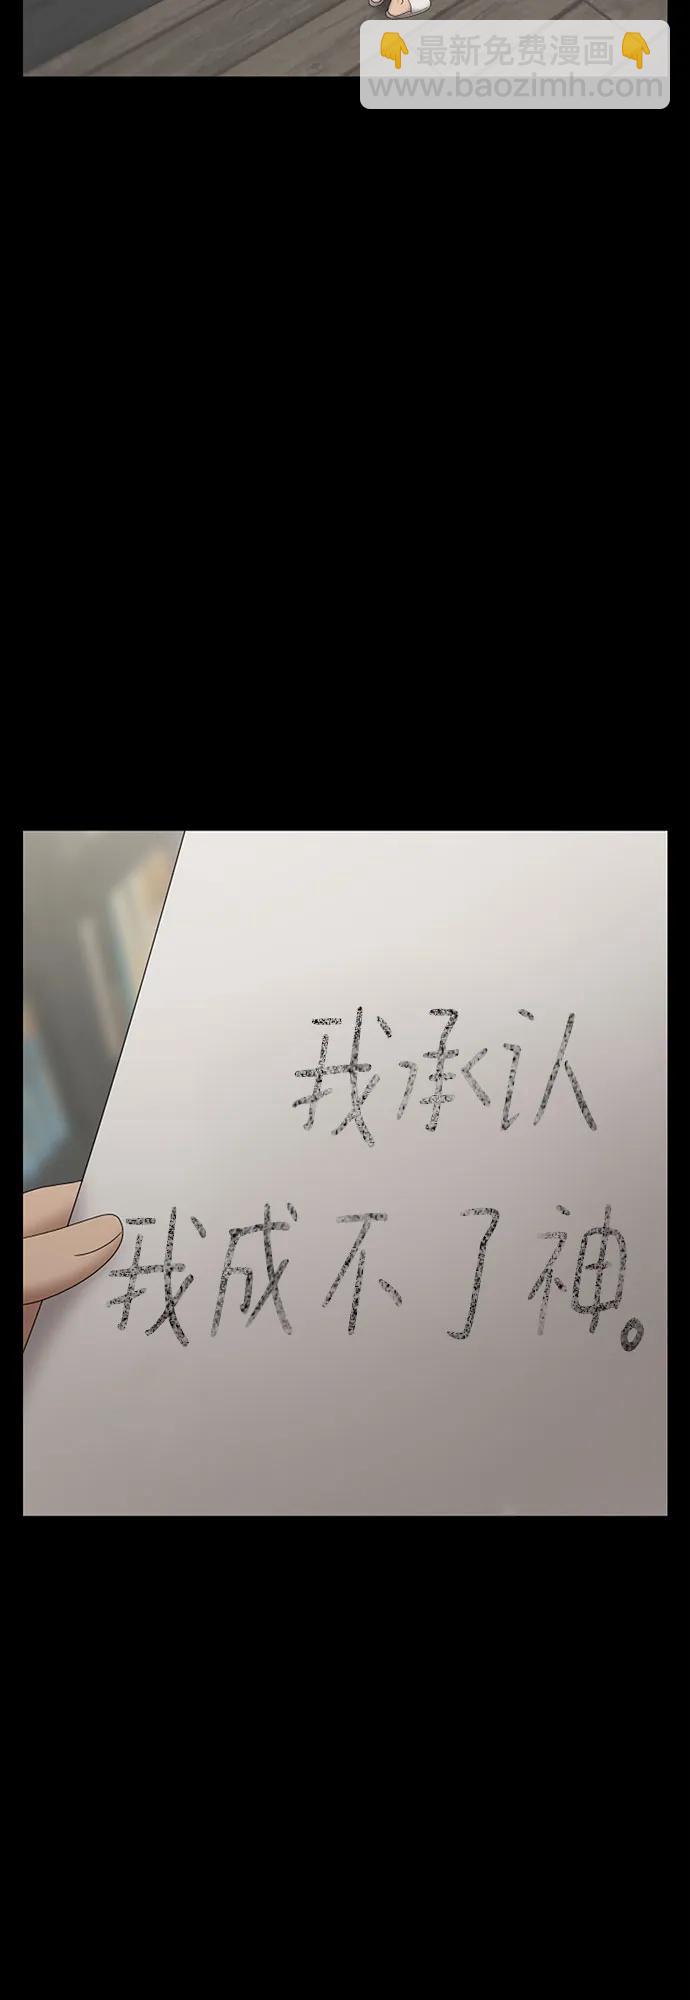 最新免费漫画
www.baozimh.com
我承认
我成不了神。